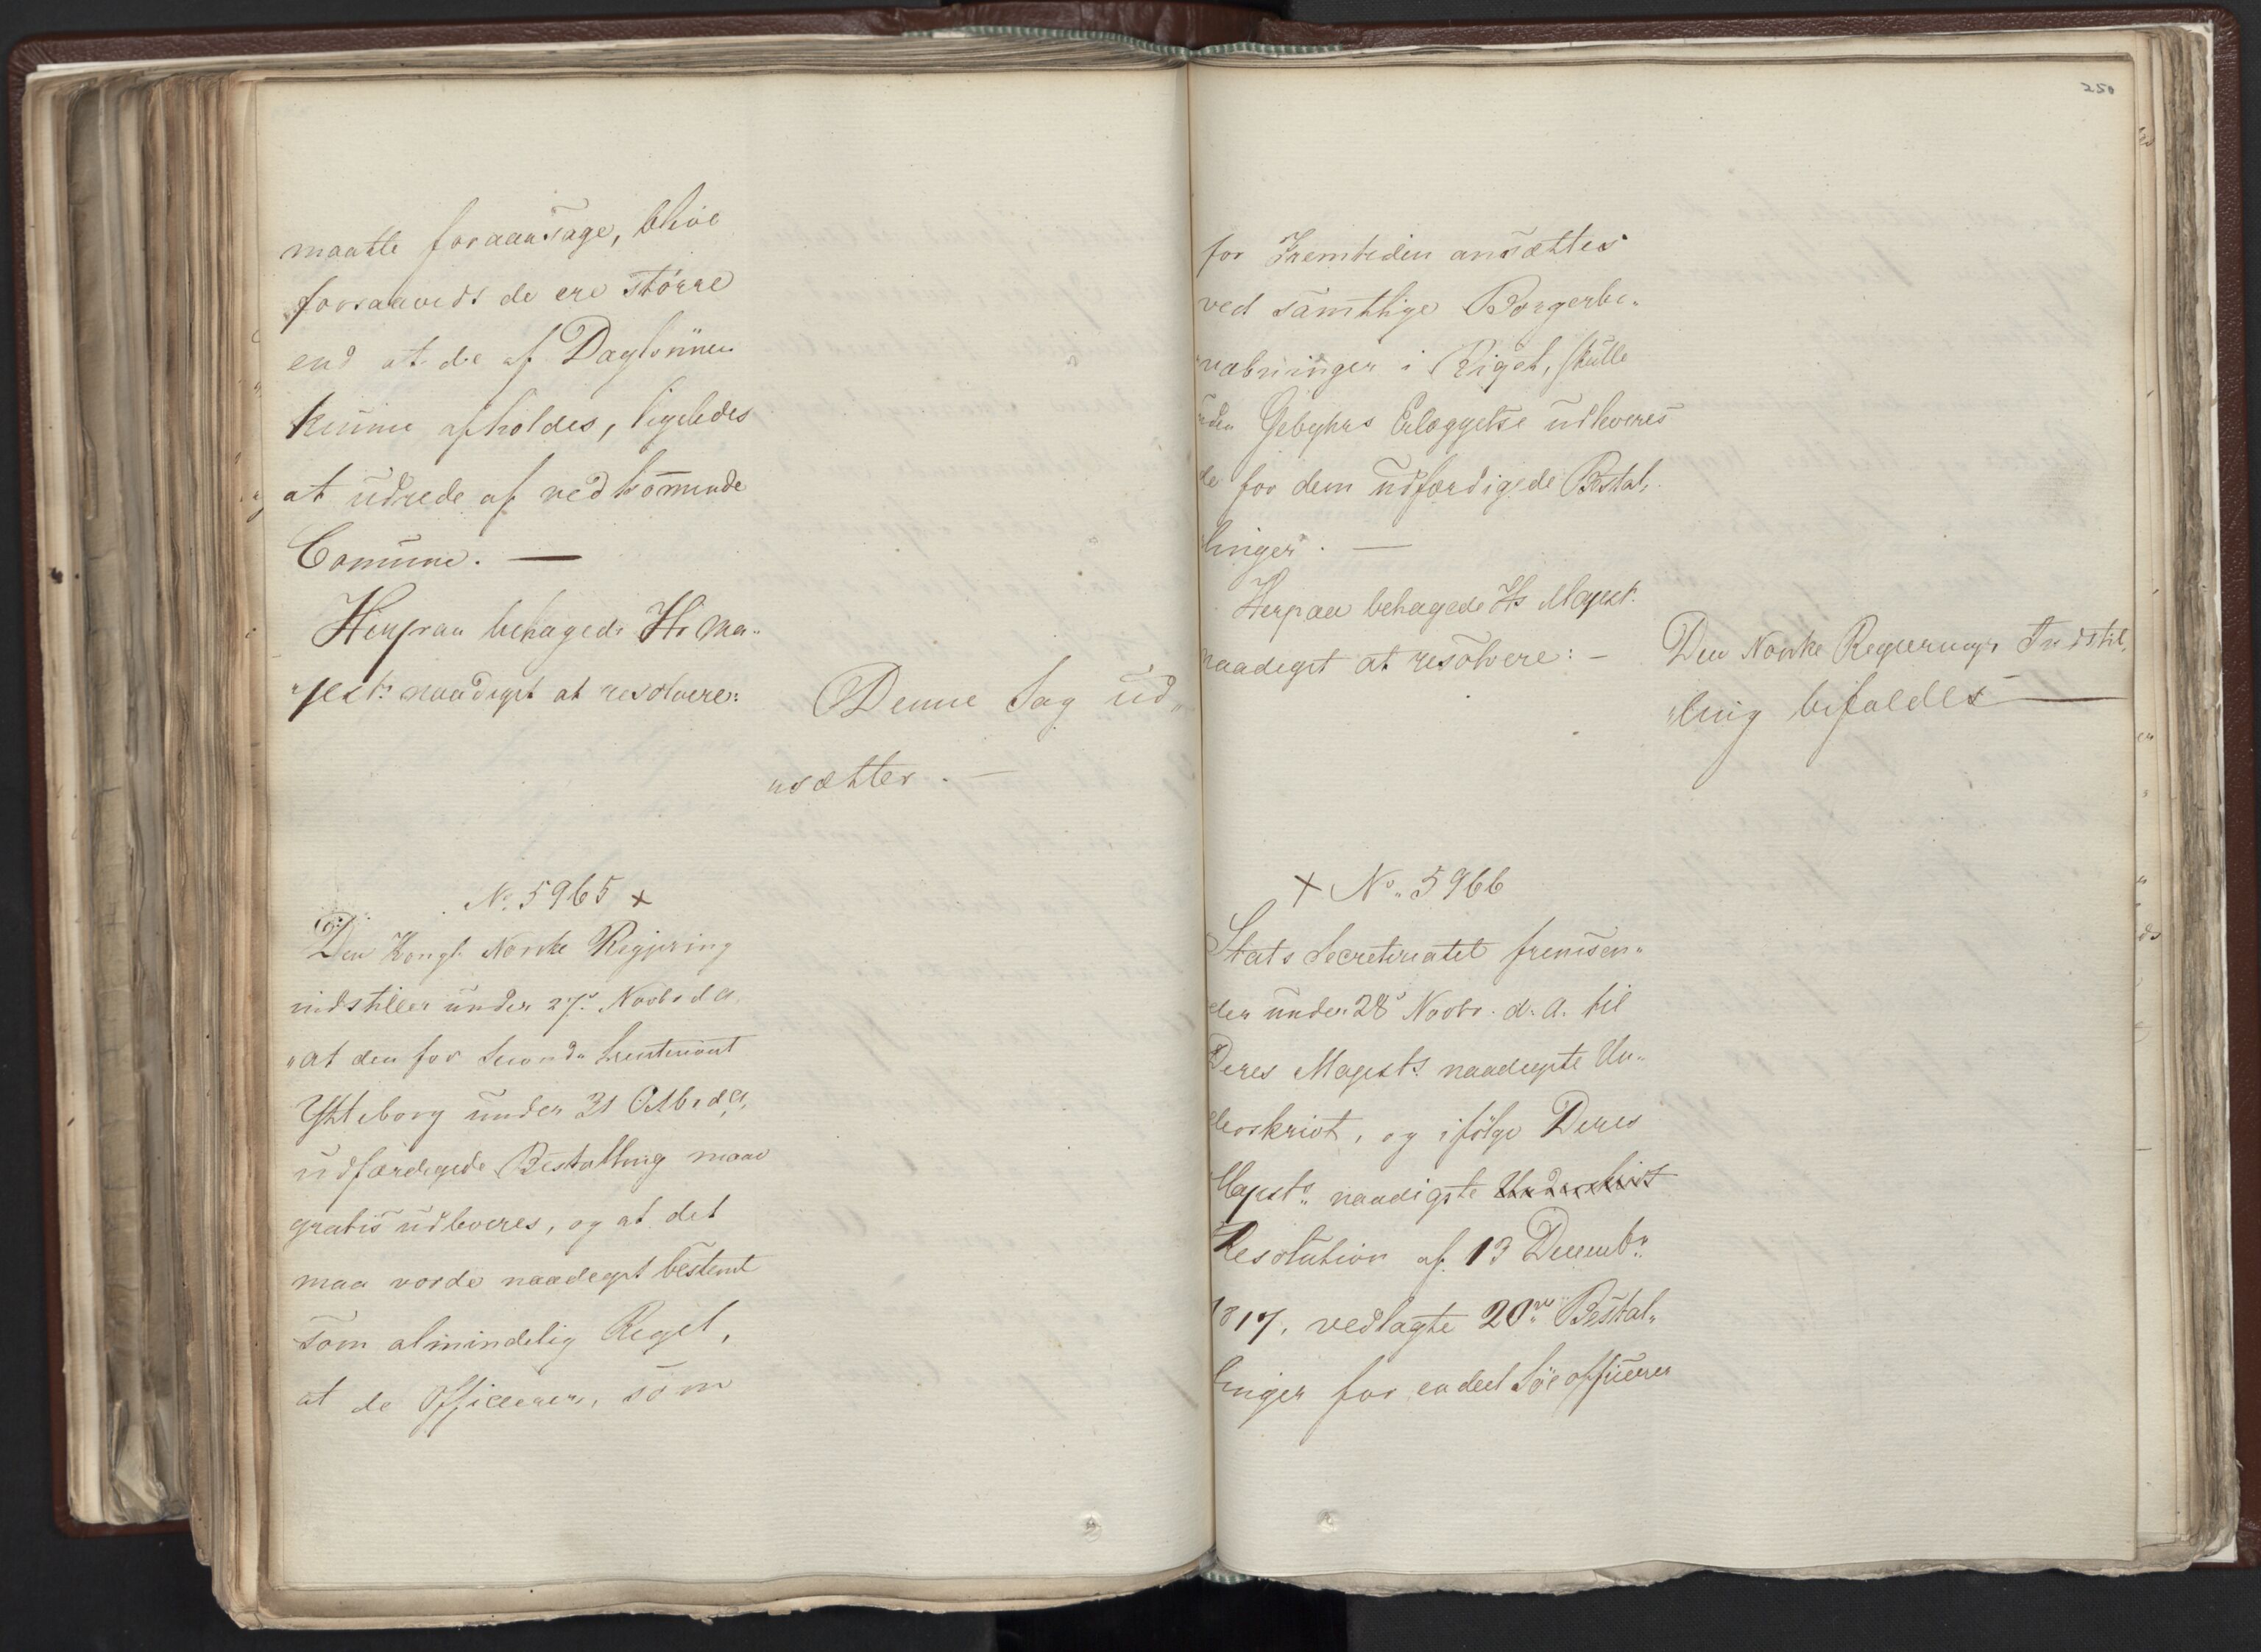 maatte foraaarsage, blive
forsaavidt de ere större
end at de af Daglönnen
kunne afholdes, ligeledes
at udrede af vedkommende
Comune. —
Herpaa behagede Hs Ma„
„jest: naadigst at resolvere:
Denne Sag ud„
„sættes. —
No. 5965 +
Den Kongl. Norske Regjering
indstiller under 27de Novbr d. A.
„at den for Second Lieutenant
Ytteborg under 31 Octbr d. A.
udfærdigede Bestalling maae
gratis udleveres, og at det
maa vorde naadigst bestemt
som almindelig Regel,
at de Officerer, som
250
for Fremtiden ansættes
ved samtlige Borgerbe„
væbninger i Riget, skulle
uden Gebyhrs Erlæggelse udleveres
de for dem udfærdigede Bestal„
linger. —
Herpaa behagede Hs Majest.
naadigst at resolvere: —
Den Norske Regjerings Indstil„
„ling bifaldes —
+ No. 5966
Stats Secretariatet fremsen„
der under 28 Novbr. d. A. til
Deres Majests naadigste Un„
derskrivt, og ifölge Deres
Majests naadigste Underskrivt
Resolution af 13 Decembr
1817, vedlagte 20ve Bestal„
linger for en deel Söe officerer